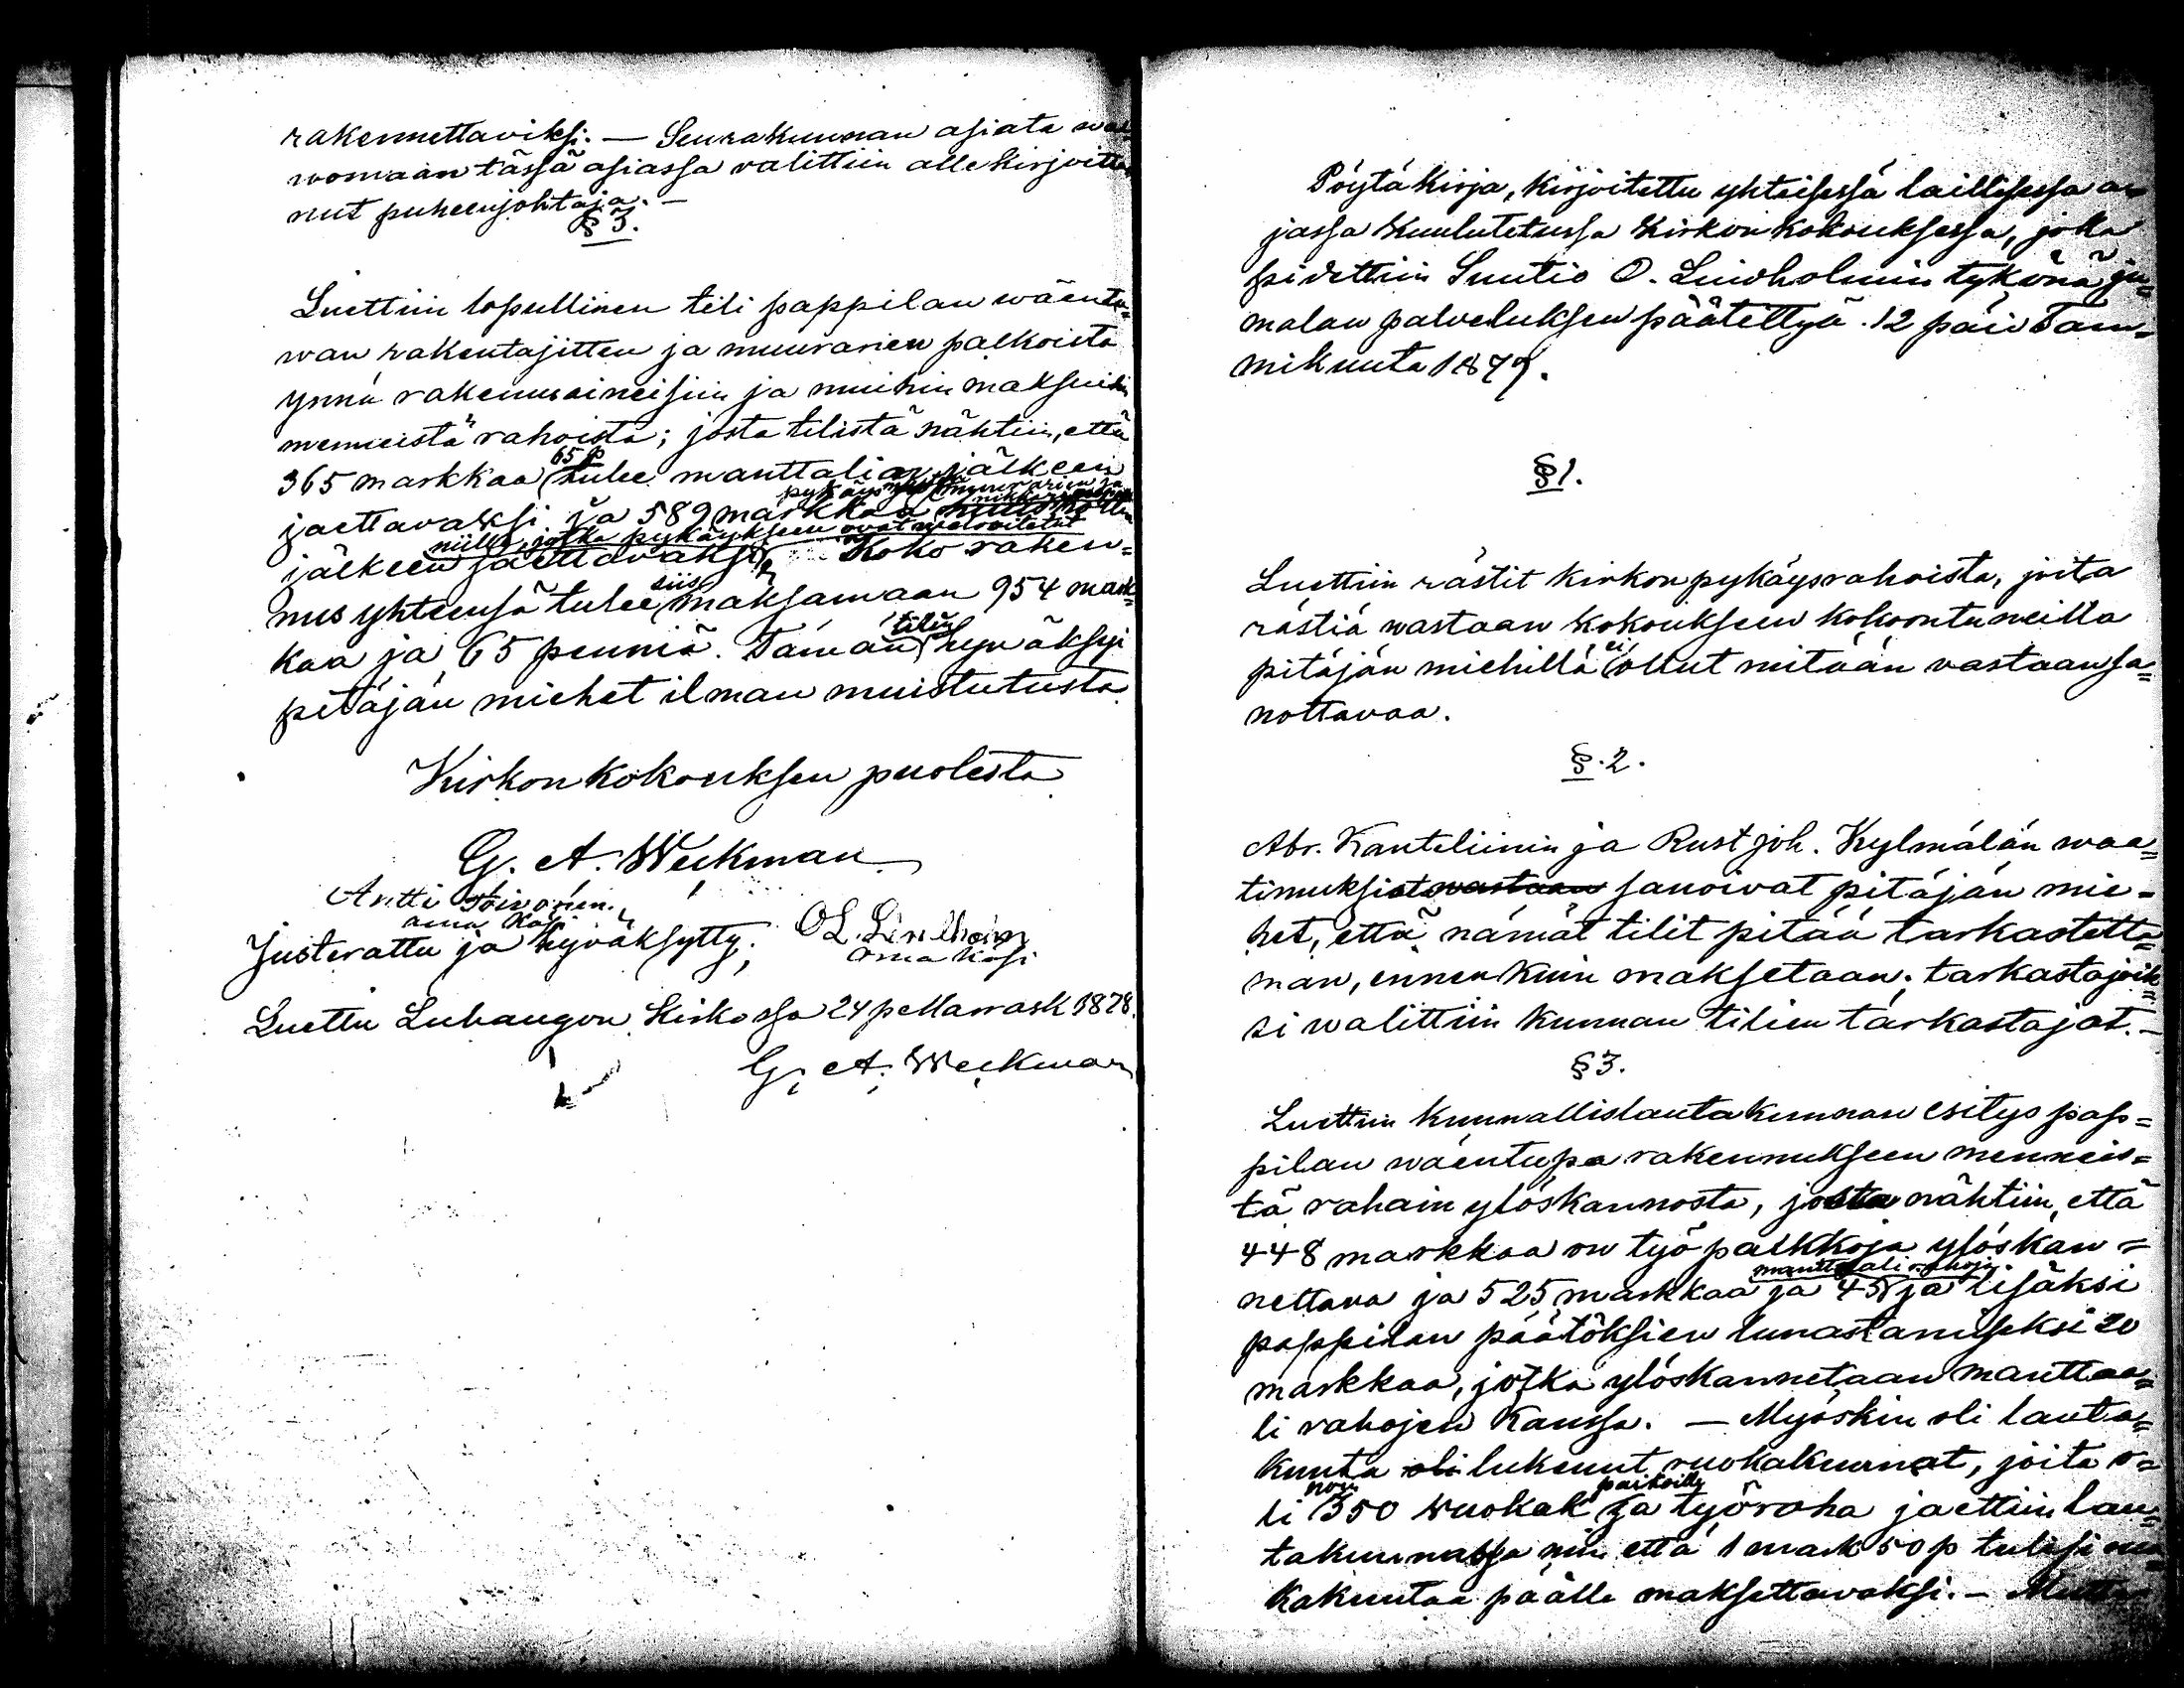 rakennettaviksi. — Seurakunnan asiata wal=
womaan tässä asiassa valittiin allekirjoitta=
nut puheenjohtaja. —
§ 3.
Luettiin lopullinen tili pappilan wäentu=
wan rakentajitten ja muurarien palkoista
ynnä rakennusaineisiin ja muihin maksuihin
menneistä rahoista; josta tilistä nähtiin, että
365 markkaa 65 p tulee manttalian jälkeen
jaettavaksi ja 589 markkaa
pykäysmiesten muurarien ja
jälkeen jaettavaksi Koko raken=
niille, jotka pykäykseen ovat welvoitetut
nus yhteensä tulee siis maksamaan 954 mark=
kaa ja 65 penniä. Tämän tilin hyväksyi
pitäjän miehet ilman muistutusta
Kirkonkokouksen puolesta
G. A. Weckman
Antti Toivonen.
oma käsi
Justerattu ja hyväksytty; O L. Lindholm
oma käsi
Luettu Luhangon kirkossa 24 p Marrask 1878.
G. A. Weckman
Pöytäkirja, kirjoitettu yhteisessä laillisessa a=
jassa kuulutetussa kirkonkokouksessa, joka
pidettiin Suntio O. Lindholmin tykönä ju=
malan palveluksen päätettyä 12 päiv Tam=
mikuuta 1879.
§ 1.
Luettiin rästit kirkonpykäysrahoista, joita
rästiä wastaan kokoukseen kokoontuneilla
pitäjän miehillä ei ollut mitään vastaansa=
nottavaa.
§. 2.
Abr. Kanteliinin ja Rust Joh. Kylmälän waa=
timuksista wastaan sanoivat pitäjän mie=
het, että nämät tilit pitää tarkastetta=
man, ennen kuin maksetaan; tarkastajoik=
si walittiin kunnan tilien tarkastajat. —
§ 3.
Luettiin kunnallislautakunnan esitys pap=
pilan wäentupa rakennukseen menneis=
tä rahain ylöskannosta, josta nähtiin, että
448 markkaa on työpalkkoja ylöskan=
nettava ja 525 markkaa ja 45 manttali rahoja ja lisäksi
pappilan päätöksien lunastamiseksi 20
markkaa, jotka ylöskannetaan manttaa=
li rahojen kanssa. — Myöskin oli lauta=
kunta oli lukenut ruokakunnat, joita o=
li noin 350 ruokak paikoilla ja työraha jaettiin lau=
takunnassa niin että 1 mark 50 p tulisi ruo=
kakuntaa päälle maksettavaksi. — Mutta